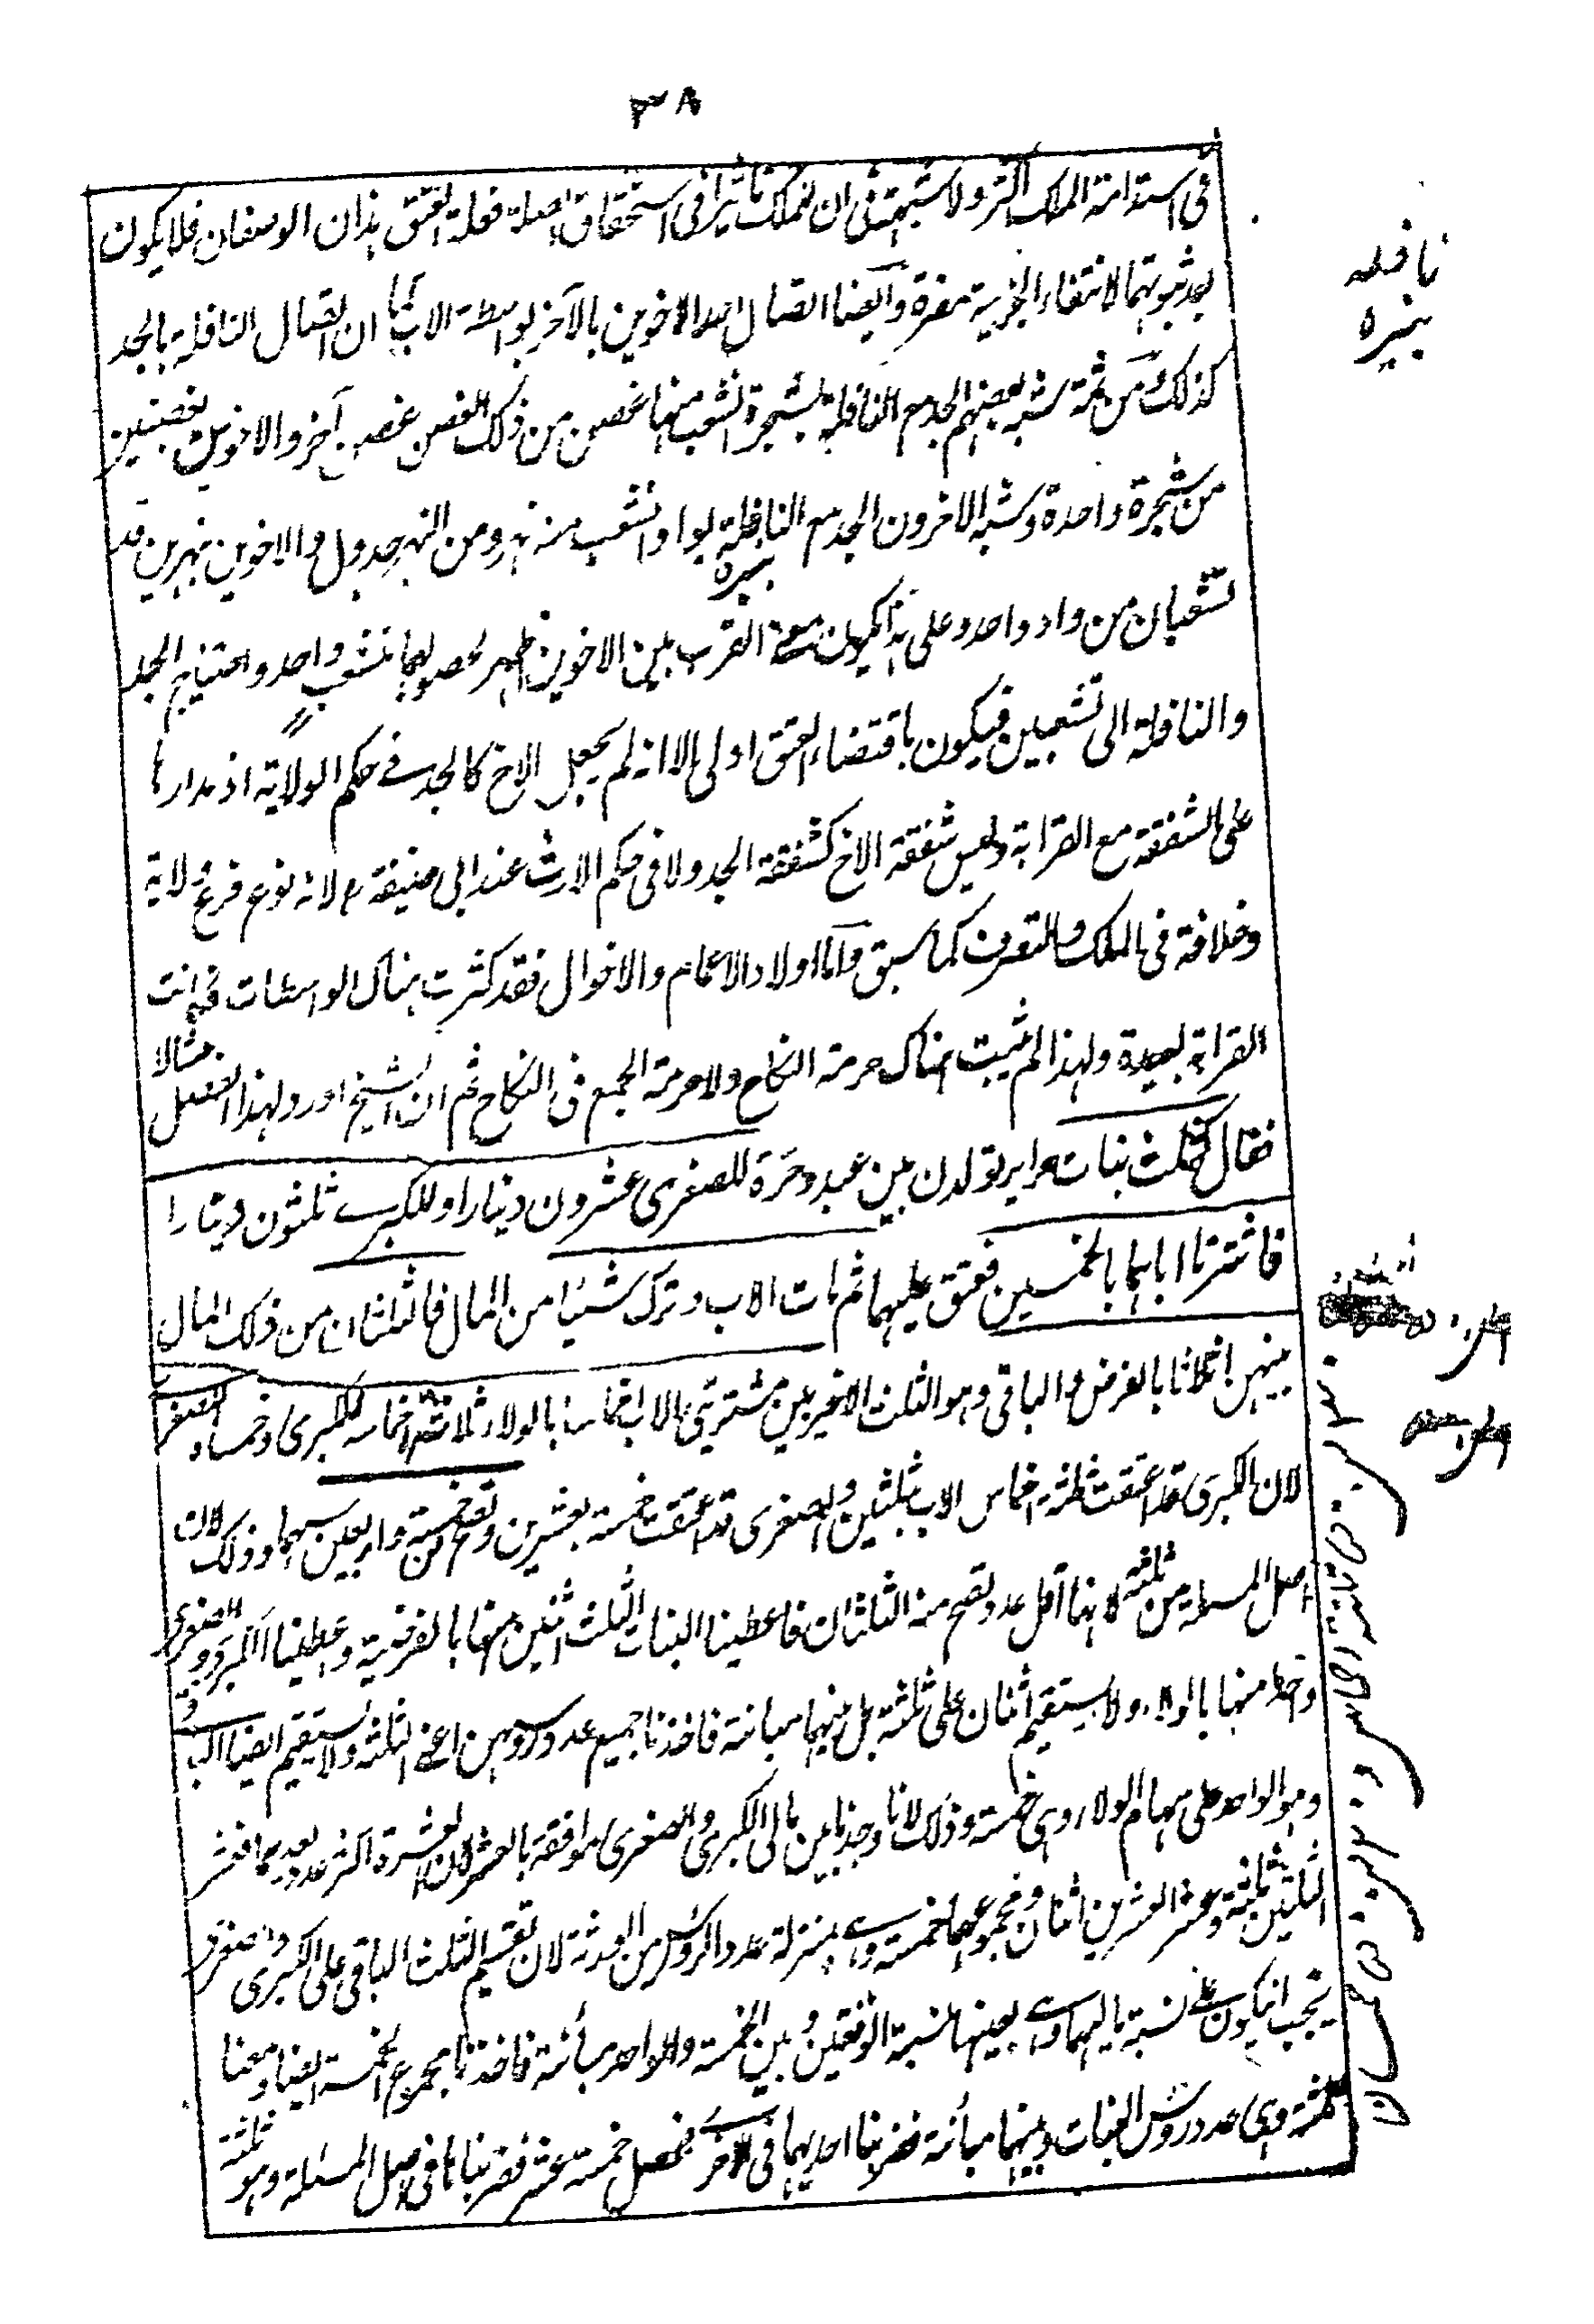 ٣٨
فى استدامة الملك اكثر ولا شبهة فى ان للملك تاثيرا فى استحقاق الصلة فعلة العتق هذان الوصفان فلا يكون
بعد ثبوتهما لانتفاء الجزئية مضرة وايضا اتصال احد الاخوين بالآخر بواسطة الاب كما ان اتصال النافلة بالجد
كذلك ومن ثمة شبه بعضهم الجد مع النافلة بشجرة انشعب منها غصن من ذلك الغصن غصن آخر والاخوين بغصنين
من شجرة واحدة وشبه الاخرون الجد مع النافلة بواد انشعب منه نهر ومن النهر جدول والاخوين بنهرين قد
نبيره
تشعبان من واد واحد وعلى هذا يكون معنى القرب بين الاخوين اظهر لحصولهما بتشعب واحد واحتياج الجد
والنافلة الى تشعبين فيكون باقتضاء العتق اولى الا انه لم يجعل الاخ كالجد فى حكم الولاية اذ مدارها
على الشفقة مع القرابة وليس شفقة الاخ كشفقة الجد ولا فى حكم الارث عند ابى حنيفة رح لانه نوع فرع ولاية
وخلافة فى الملك والتصرف كما سبق واما اولاد الاعمام والاخوال فقد كثرت هناك الواسطات فكانت
القرابة بعيدة ولهذا لم يثبت هناك حرمة النكاح ولا حرمة الجمع فى النكاح ثم ان الشيخ اورد لهذا الفصل مثالا
فقال كثلث بنات حراير تولدن بين عبد وحرة للصغرى عشرون دينارا وللكبرى ثلثون دينارا
فاشترتا اباهما بالخمسين فعتق عليهما ثم مات الاب وترك شيئا من المال فالثلثان من ذلك المال
بينهن اثلاثا بالفرض والباقى وهو الثلث الاخير بين مشتريتى الاب اخماسا بالولاء ثلاثة اخماسه للكبرى وخمساه للصغرى
لان الكبرى قد اعتقت ثلثة اخماس الاب بثلثين والصغرى قد اعتقت خمسة بعشرين وتصح من خمسة واربعين سهما وذلك لان
اصل المسئلة من ثلثة لانها اقل عدد يصح منه الثلثان فاعطينا البنات الثلث اثنين منها بالفرضية واعطينا الكبرى والصغرى
واحدا منها بالولاء ولا يستقيم اثنان على ثلثة بل بينهما مباينة فاخذنا جميع عدد روسهن اعنى الثلثة ولا يستقيم ايضا الباقى
وهو الواحد على سهام الولاء وهى خمسة وذلك لانا وجدنا بين مالى الكبرى والصغرى موافقة بالعشر لان العشرة اكثر عدد يعدهما فعشر
الثلثين ثلثة وعشر العشرين اثنان ومجموعهما خمسة وهى بمنزلة عدد الرؤس من الورثة لان تقسيم الثلث الباقى على الكبرى والصغرى
يجب ان يكون على نسبة ماليهما وهى بعينها نسبة الوفقين وبين الخمسة والواحد مبائنة فاخذنا مجموع الخمسة ايضا ومعنا
ثلثة وهى عدد روس البنات وبينهما مبائنة فضربنا احديهما فى الاخرى فحصل خمسة عشر فضربناها فى اصل المسئلة وهو ثلثة
نافله
نبيره